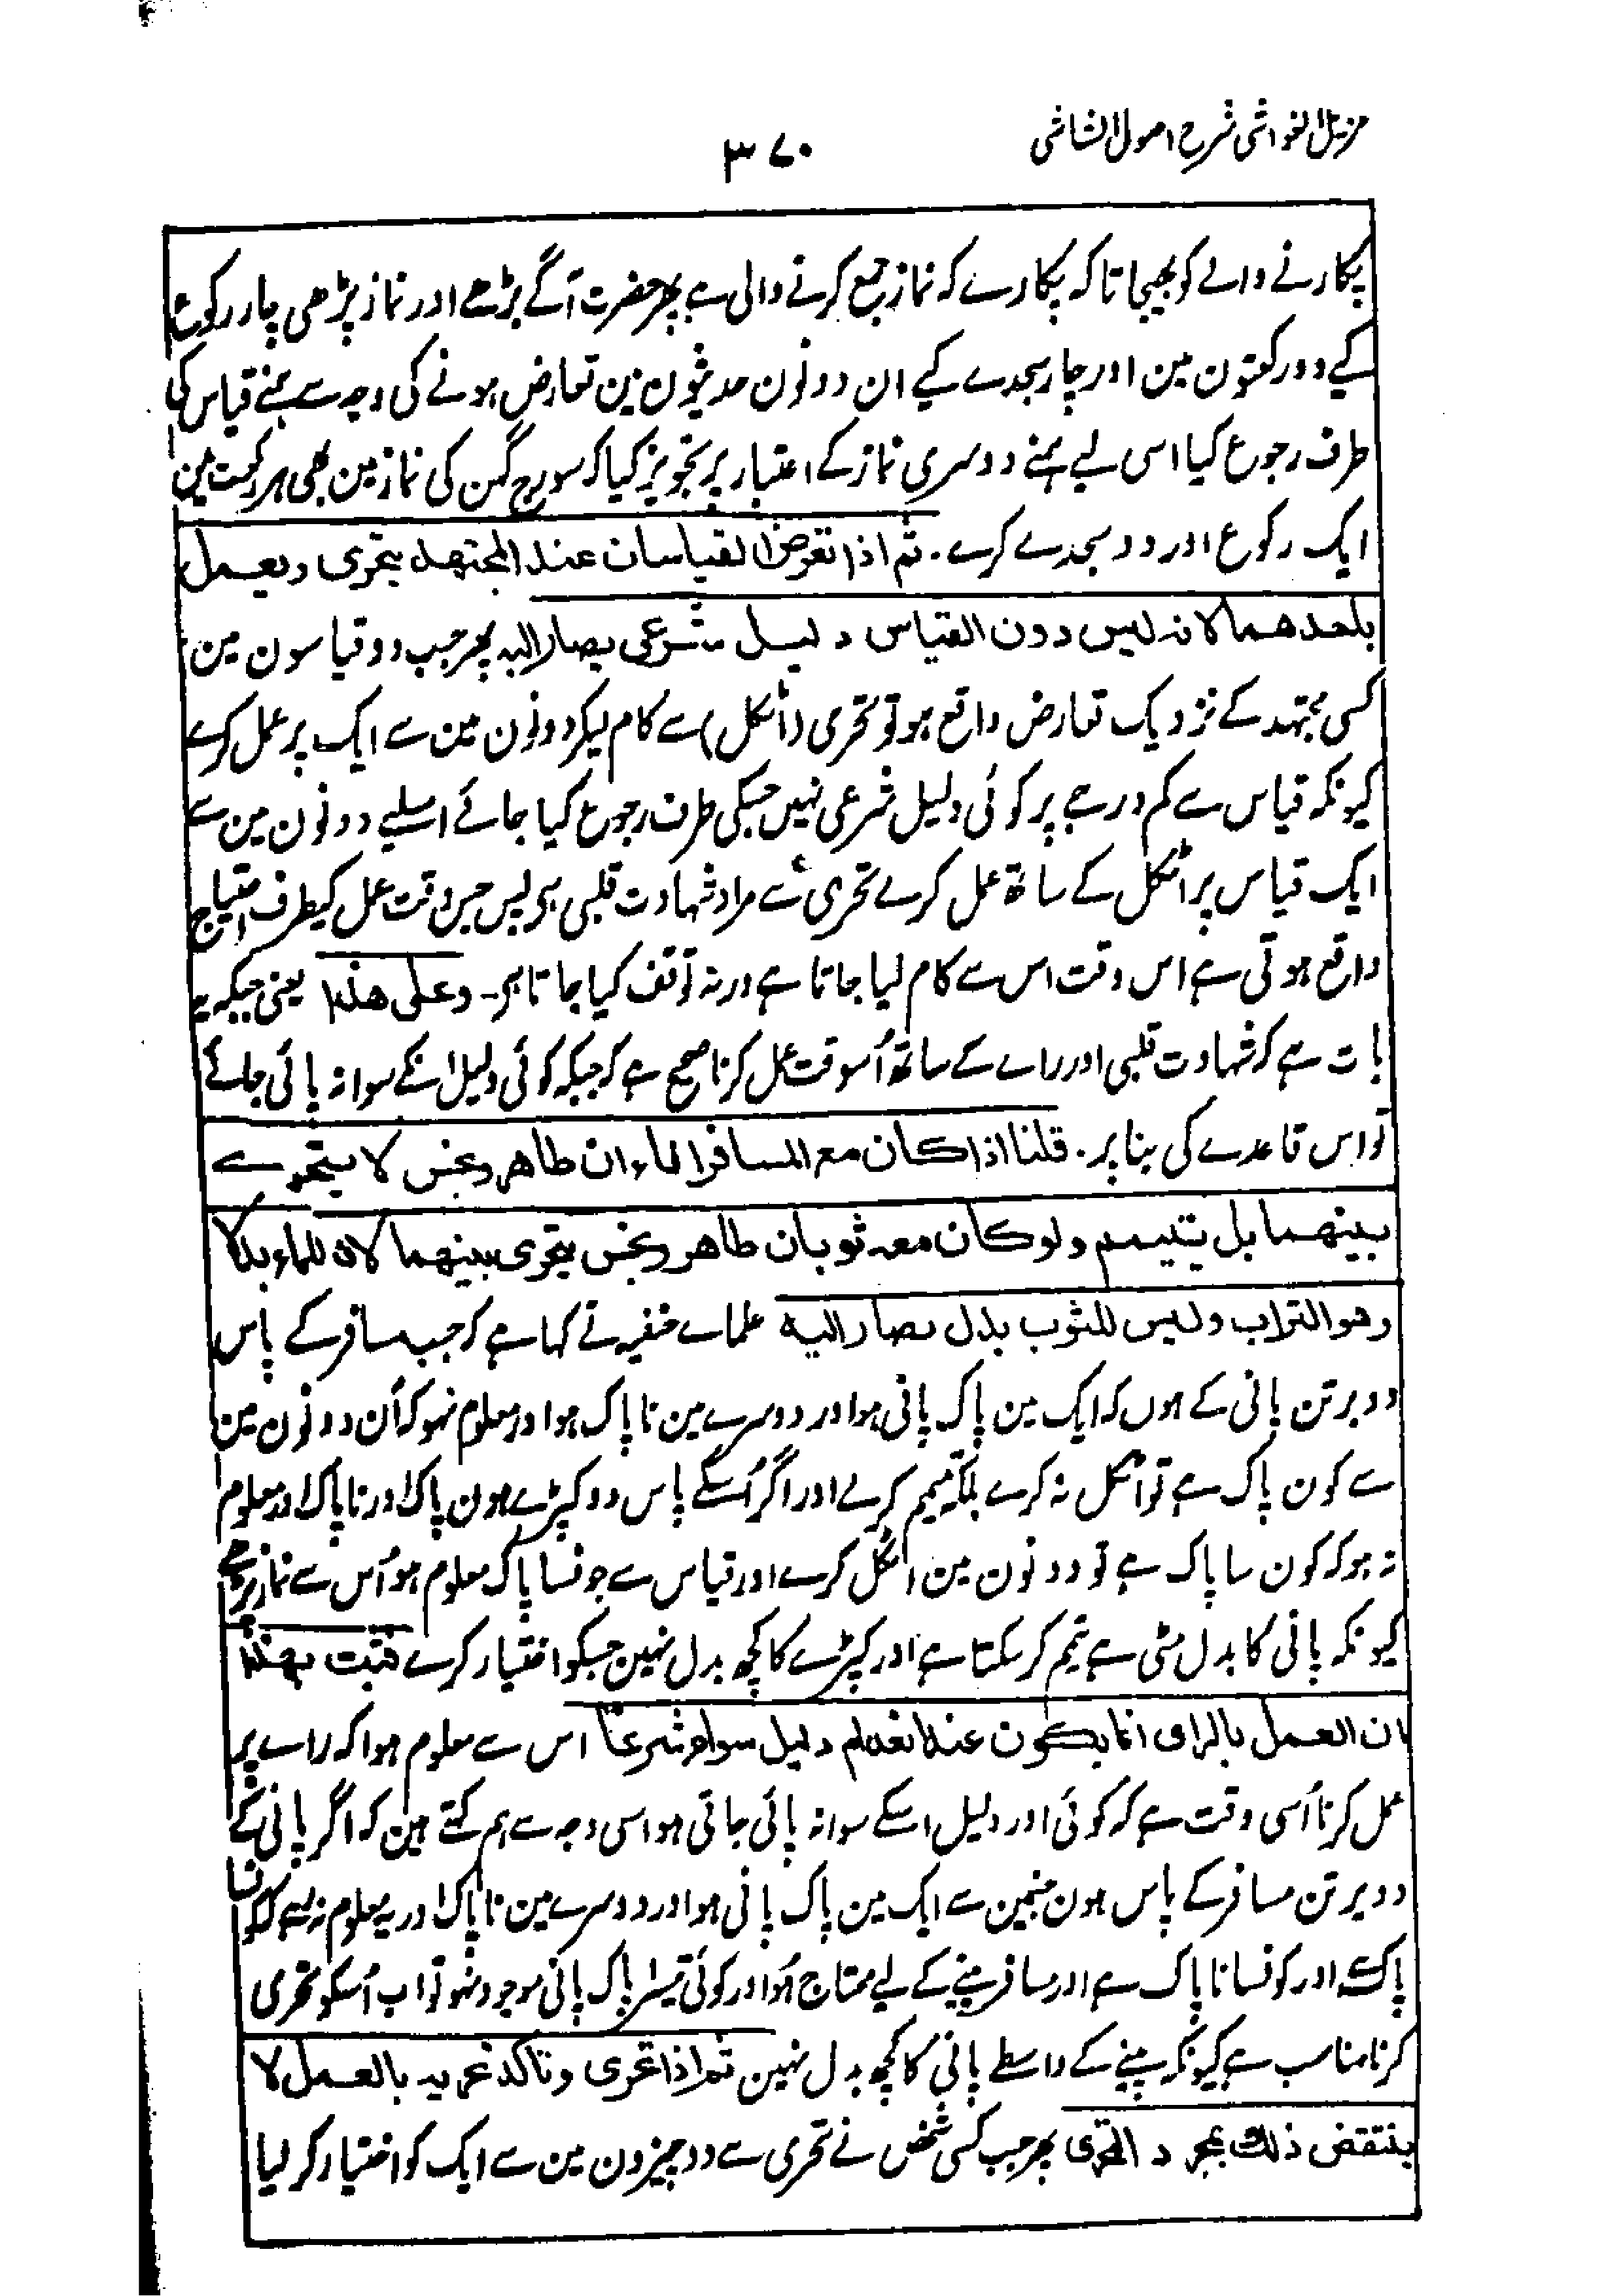 مزیل الغواشی شرح اصول الشاشی
۳۷۰
پکارنے والے کو بھیجا تاکہ پکارے کہ نماز جمع کرنے والی ہے پھر حضرت آگے بڑھے اور نماز پڑھی چار رکوع
کیے دو رکعتون مین اور چار سجدے کیے ان دونون حدیثون مین تعارض ہونے کی وجہ سے ہمنے قیاس کی
طرف رجوع کیا اسی لیے ہمنے دوسری نماز کے اعتبار پر تجویز کیا کہ سورج گہن کی نماز مین بھی ہر رکعت مین
ایک رکوع اور دو سجدے کرے۔ ثم اذا تعرض القیاسان عند المجتھد یتحری ویعمل
باحدھما لانہ لیس دون القیاس دلیل شرعی یصار الیہ پھر جب دو قیاسون مین
کسی مجتہد کے نزدیک تعارض واقع ہو تو تحری (اٹکل) سے کام لیکر دونون مین سے ایک پر عمل کرے
کیونکہ قیاس سے کم درجے پر کوئی دلیل شرعی نہیں جسکی طرف رجوع کیا جائے اسلیے دونون مین سے
ایک قیاس پر اٹکل کے ساتھ عمل کرلے تحری سے مراد شہادت قلبی ہی پس جس وقت عمل کیطرف احتیاج
واقع ہوتی ہے اس وقت اس سے کام لیا جاتا ہے ورنہ توقف کیا جاتا ہی۔ وعلی ھذا یعنی جبکہ یہ
بات ہے کہ شہادت قلبی اور راے کے ساتھ اُسوقت عمل کرنا صحیح ہے کہ جبکہ کوئی دلیل اسکے سوا نہ پائی جائے
تو اس قاعدے کی بنا پر۔ قلنا اذا کان مع المسافر اناءان طاھر ونجس لا یتحرے
بینھما بل یتیمم ولو کان معہ ثوبان طاھر ونجس یتحری بینھما لان للماء بدلا
وھو التراب ولیس للثوب بدل یصار الیہ علماے حنفیہ نے کہا ہے کہ جب مسافر کے پاس
دو برتن پانی کے ہوں کہ ایک مین پاک پانی ہو اور دوسرے مین ناپاک ہو اور معلوم نہو کہ اُن دونون مین
سے کون پاک ہے تو اٹکل نہ کرے بلکہ تیمم کرلے اور اگر اُسکے پاس دو کپڑے ہون پاک اور ناپاک اور معلوم
نہ ہو کہ کون سا پاک ہے تو دونون مین اٹکل کرے اور قیاس سے جونسا پاک معلوم ہو اُس سے نماز پڑھے
کیونکہ پانی کا بدل مٹی ہے تیمم کر سکتا ہے اور کپڑے کا کچھ بدل نہین جسکو اختیار کرے فثبت بھذا
ان العمل بالرای انما یکون عند انعدام دلیل سواہ شرعا اس سے معلوم ہوا کہ راے پر
عمل کرنا اُسی وقت ہے کہ کوئی اور دلیل اسکے سوا نہ پائی جاتی ہو اسی وجہ سے ہم کہتے ہین کہ اگر پانی کے
دو برتن مسافر کے پاس ہون جنمین سے ایک مین پاک پانی ہو اور دوسرے مین ناپاک اور یہ معلوم نہ ہے کہ کونسا
پاک اور کونسا ناپاک ہے اور مسافر پینے کے لیے محتاج ہو اور کوئی تیسرا پاک پانی موجود نہو تو اب اُسکو تحری
کرنا مناسب ہے کیونکہ پینے کے واسطے پانی کا کچھ بدل نہین ثم اذا تحری وتاکد تحریہ بالعمل لا
ینتقض ذلک بمجرد التحری پھر جب کسی شخص نے تحری سے دو چیزون مین سے ایک کو اختیار کر لیا